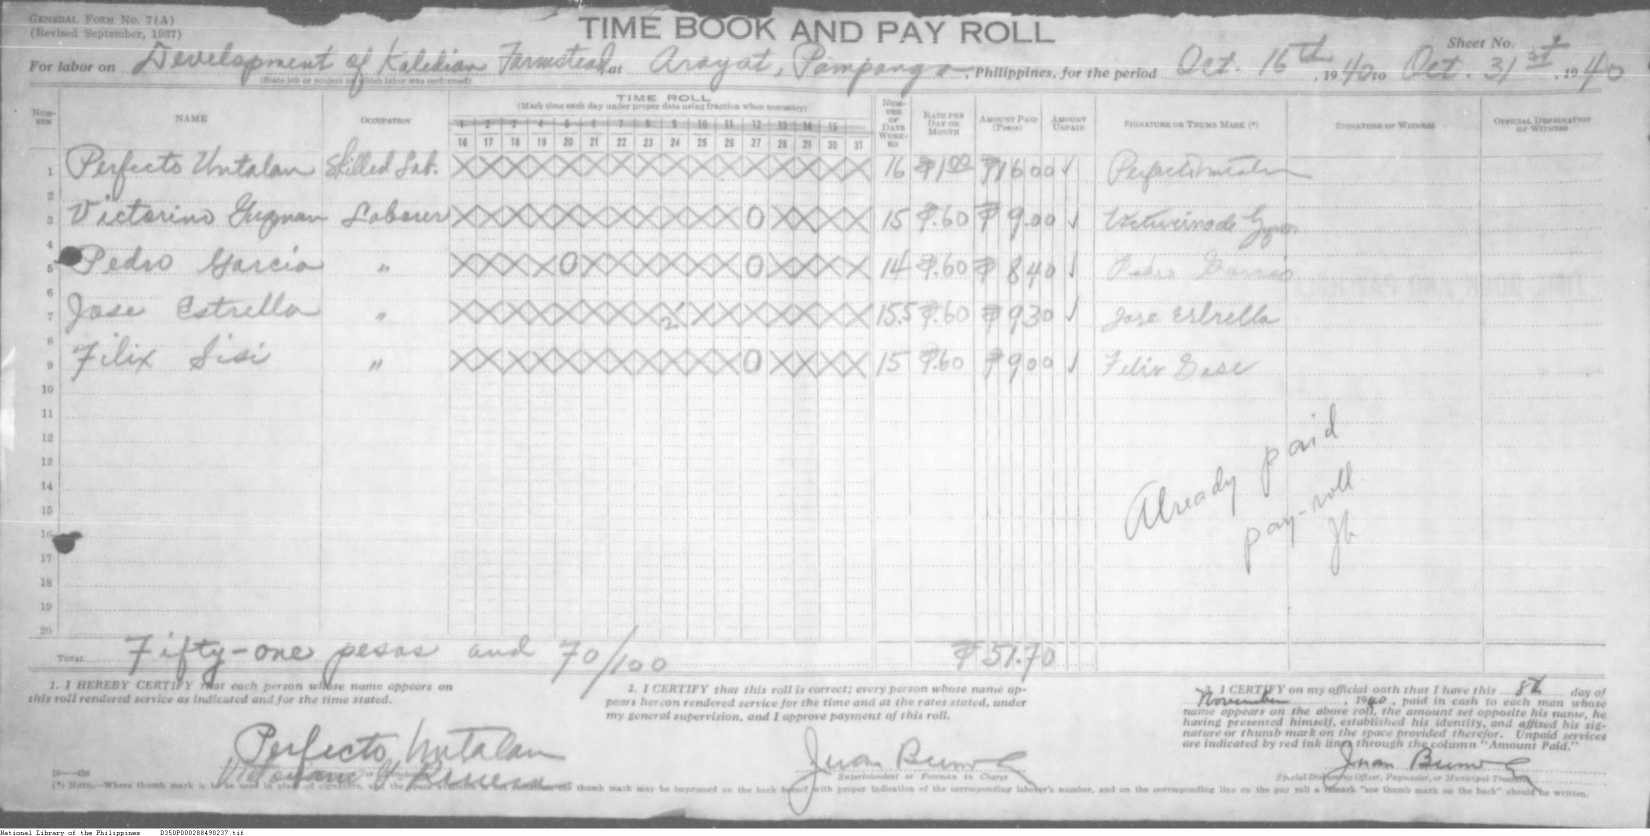 GENERAL FORM NO. 7(A)
(Revised September, 1937)
TIME BOOK AND PAY ROLL
Sheet No.
For labor on Development of Kaledian Farmstead at Arayat, Pampanga, Philippines, for the period Oct. 16th, 1940 to Oct. 31st, 1940
(State job or project on which labor was performed)
NUMBER NAME OCCUPATION TIME ROLL NUMBER OF DAYS WORKED RATE PER DAY OR MONTH AMOUNT PAID (Pesos) AMOUNT UNPAID SIGNATURE OR THUMB MARK (*) SIGNATURE OF WITNESS OFFICIAL DESIGNATION OF WITNESS
(Mark time each day under proper date using fraction when necessary)
1 2 3 4 5 6 7 8 9 10 11 12 13 14 15
16 17 18 19 20 21 22 23 24 25 26 27 28 29 30 31
1 Perfecto Untalan Skilled Lab. X X X X X X X X X X X X X X X X 16 ₱1.00 ₱16 00 ✓
2
3 Victorino Guzman Laborer X X X X X X X X X X X 0 X X X X 15 ₱.60 ₱ 9.00 ✓
4
5 Pedro Garcia " X X X X 0 X X X X X X 0 X X X X 14 ₱.60 ₱ 8 40 ✓ Pedro Garcia
6
7 Jose Estrella " X X X X X X X X 2 X X X X X X X 15.5 ₱.60 ₱ 9 30 ✓ Jose Estrella
8
9 Filix Sisi " X X X X X X X X X X X 0 X X X X 15 ₱.60 ₱ 9 00 ✓ Felix
10
11
12
12
14
15
16
17
18
19
20
Already paid
pay-roll
TOTAL Fifty-one pesos and 70/100 ₱ 51.70
1. I HEREBY CERTIFY that each person whose name appears on
this roll rendered service as indicated and for the time stated.
Perfecto Untalan
2. I CERTIFY that this roll is correct; every person whose name ap-
pears hereon rendered service for the time and at the rates stated, under
my general supervision, and I approve payment of this roll.
Juan
Superintendent or Foreman in Charge
3. I CERTIFY on my official oath that I have this 8th day of
November, 1940, paid in cash to each man whose
name appears on the above roll, the amount set opposite his name, he
having presented himself, established his identity, and affixed his sig-
nature or thumb mark on the space provided therefor. Unpaid services
are indicated by red ink lines through the column "Amount Paid."
Juan
Special Disbursing Officer, Paymaster, or Municipal Treasurer
(*) NOTE.—Where thumb mark is to be used in place of signature, thumb mark may be impressed on the back hereof with proper indication of the corresponding laborer's number, and on the corresponding line on the pay roll a remark "see thumb mark on the back" should be written.
National Library of the Philippines D350P000288490237.tif